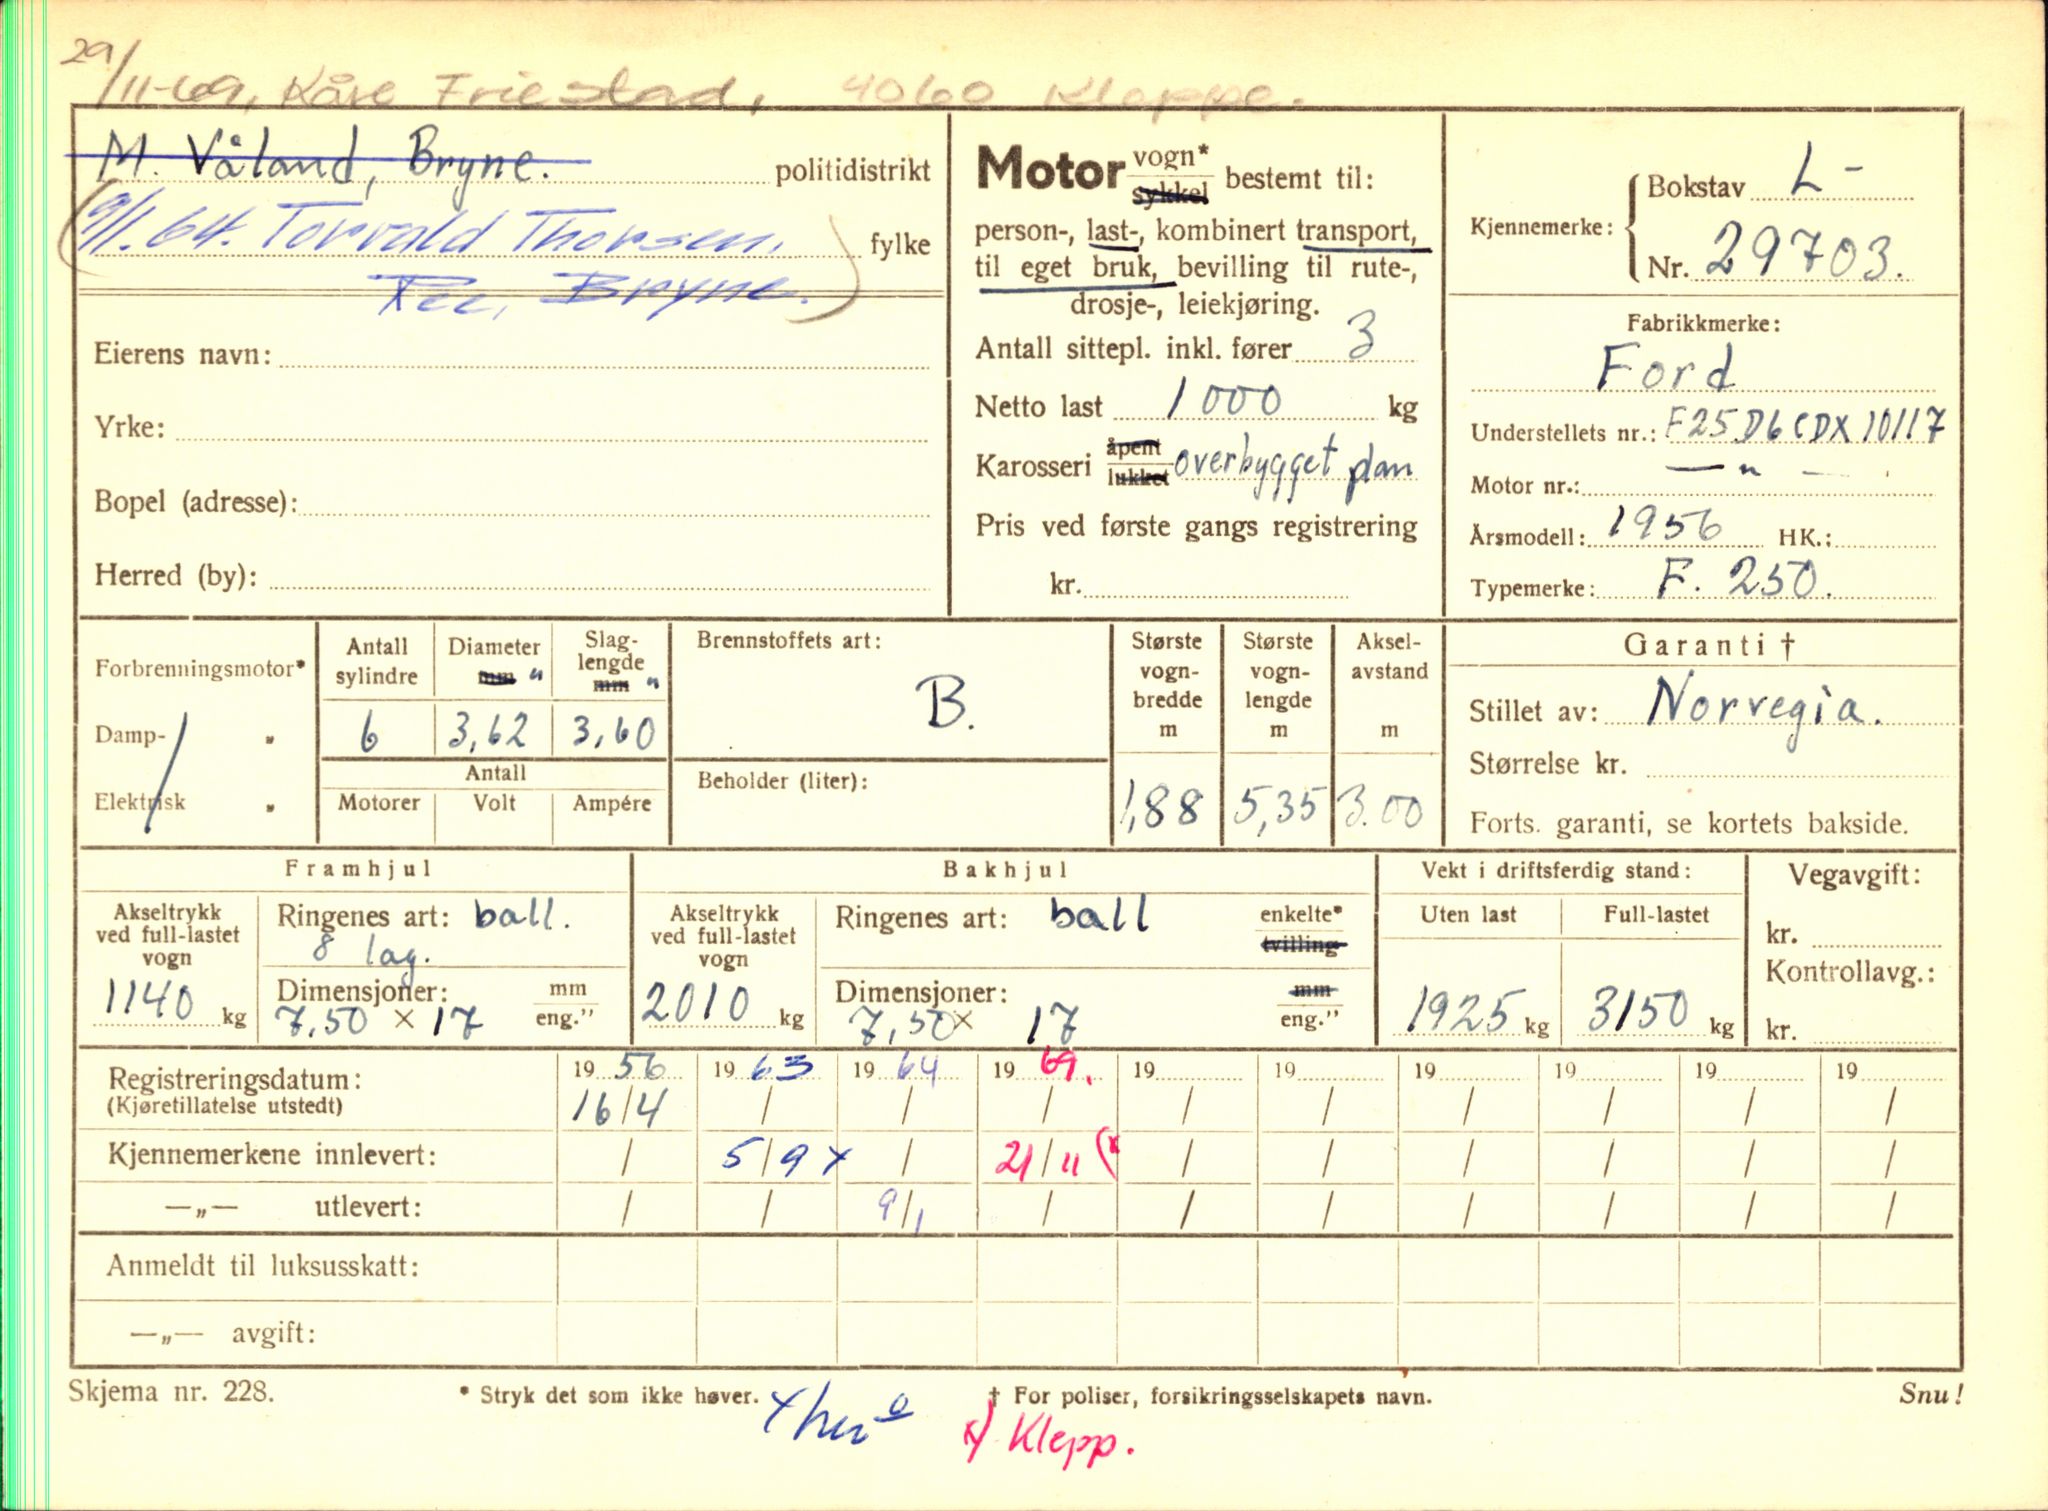 29/11-69, Kåre Friestad, 4060 Kleppe.
M. Våland, Bryne. politidistrikt
9/1.64. Torvald Thorsen, fylke
Ree, Bryne.
Eierens navn:
Yrke:
Bopel (adresse):
Herred (by):
Motor vogn* sykkel bestemt til:
person-, last-, kombinert transport,
til eget bruk, bevilling til rute-,
drosje-, leiekjøring.
Antall sittepl. inkl. fører 3
Netto last 1000 kg
Karosseri åpent lukket overbygget plan
Pris ved første gangs registrering
kr.
Kjennemerke: Bokstav L-
Nr. 29703.
Fabrikkmerke:
Ford
Understellets nr.: F25D6CDX10117
Motor nr.: — " —
Årsmodell: 1956 HK.:
Typemerke: F. 250.
Forbrenningsmotor*
Damp- "
Elektrisk "
Antall sylindre 6
Diameter mm " 3,62
Slaglengde mm " 3,60
Antall
Motorer Volt Ampére
Brennstoffets art:
B.
Beholder (liter):
Største vognbredde m 1,88
Største vognlengde m 5,35
Akselavstand m 3.00
Garanti †
Stillet av: Norvegia.
Størrelse kr.
Forts. garanti, se kortets bakside.
Framhjul
Akseltrykk ved full-lastet vogn 1140 kg
Ringenes art: ball.
8 lag.
Dimensjoner: mm eng."
7,50 × 17
Bakhjul
Akseltrykk ved full-lastet vogn 2010 kg
Ringenes art: ball enkelte* tvilling
Dimensjoner: mm eng."
7,50 × 17
Vekt i driftsferdig stand:
Uten last Full-lastet
1925 kg 3150 kg
Vegavgift:
kr.
Kontrollavg.:
kr.
Registreringsdatum: 19 56 19 63 19 64 19 69. 19 19 19 19 19 19
(Kjøretillatelse utstedt) 16/4 / / / / / / / / /
Kjennemerkene innlevert: / 5/9 x / 21/11 (x / / / / / /
—„— utlevert: / / 9/1 / / / / / / /
Anmeldt til luksusskatt:
—„— avgift:
Skjema nr. 228. * Stryk det som ikke høver. † For poliser, forsikringsselskapets navn. Snu!
x) Klepp.